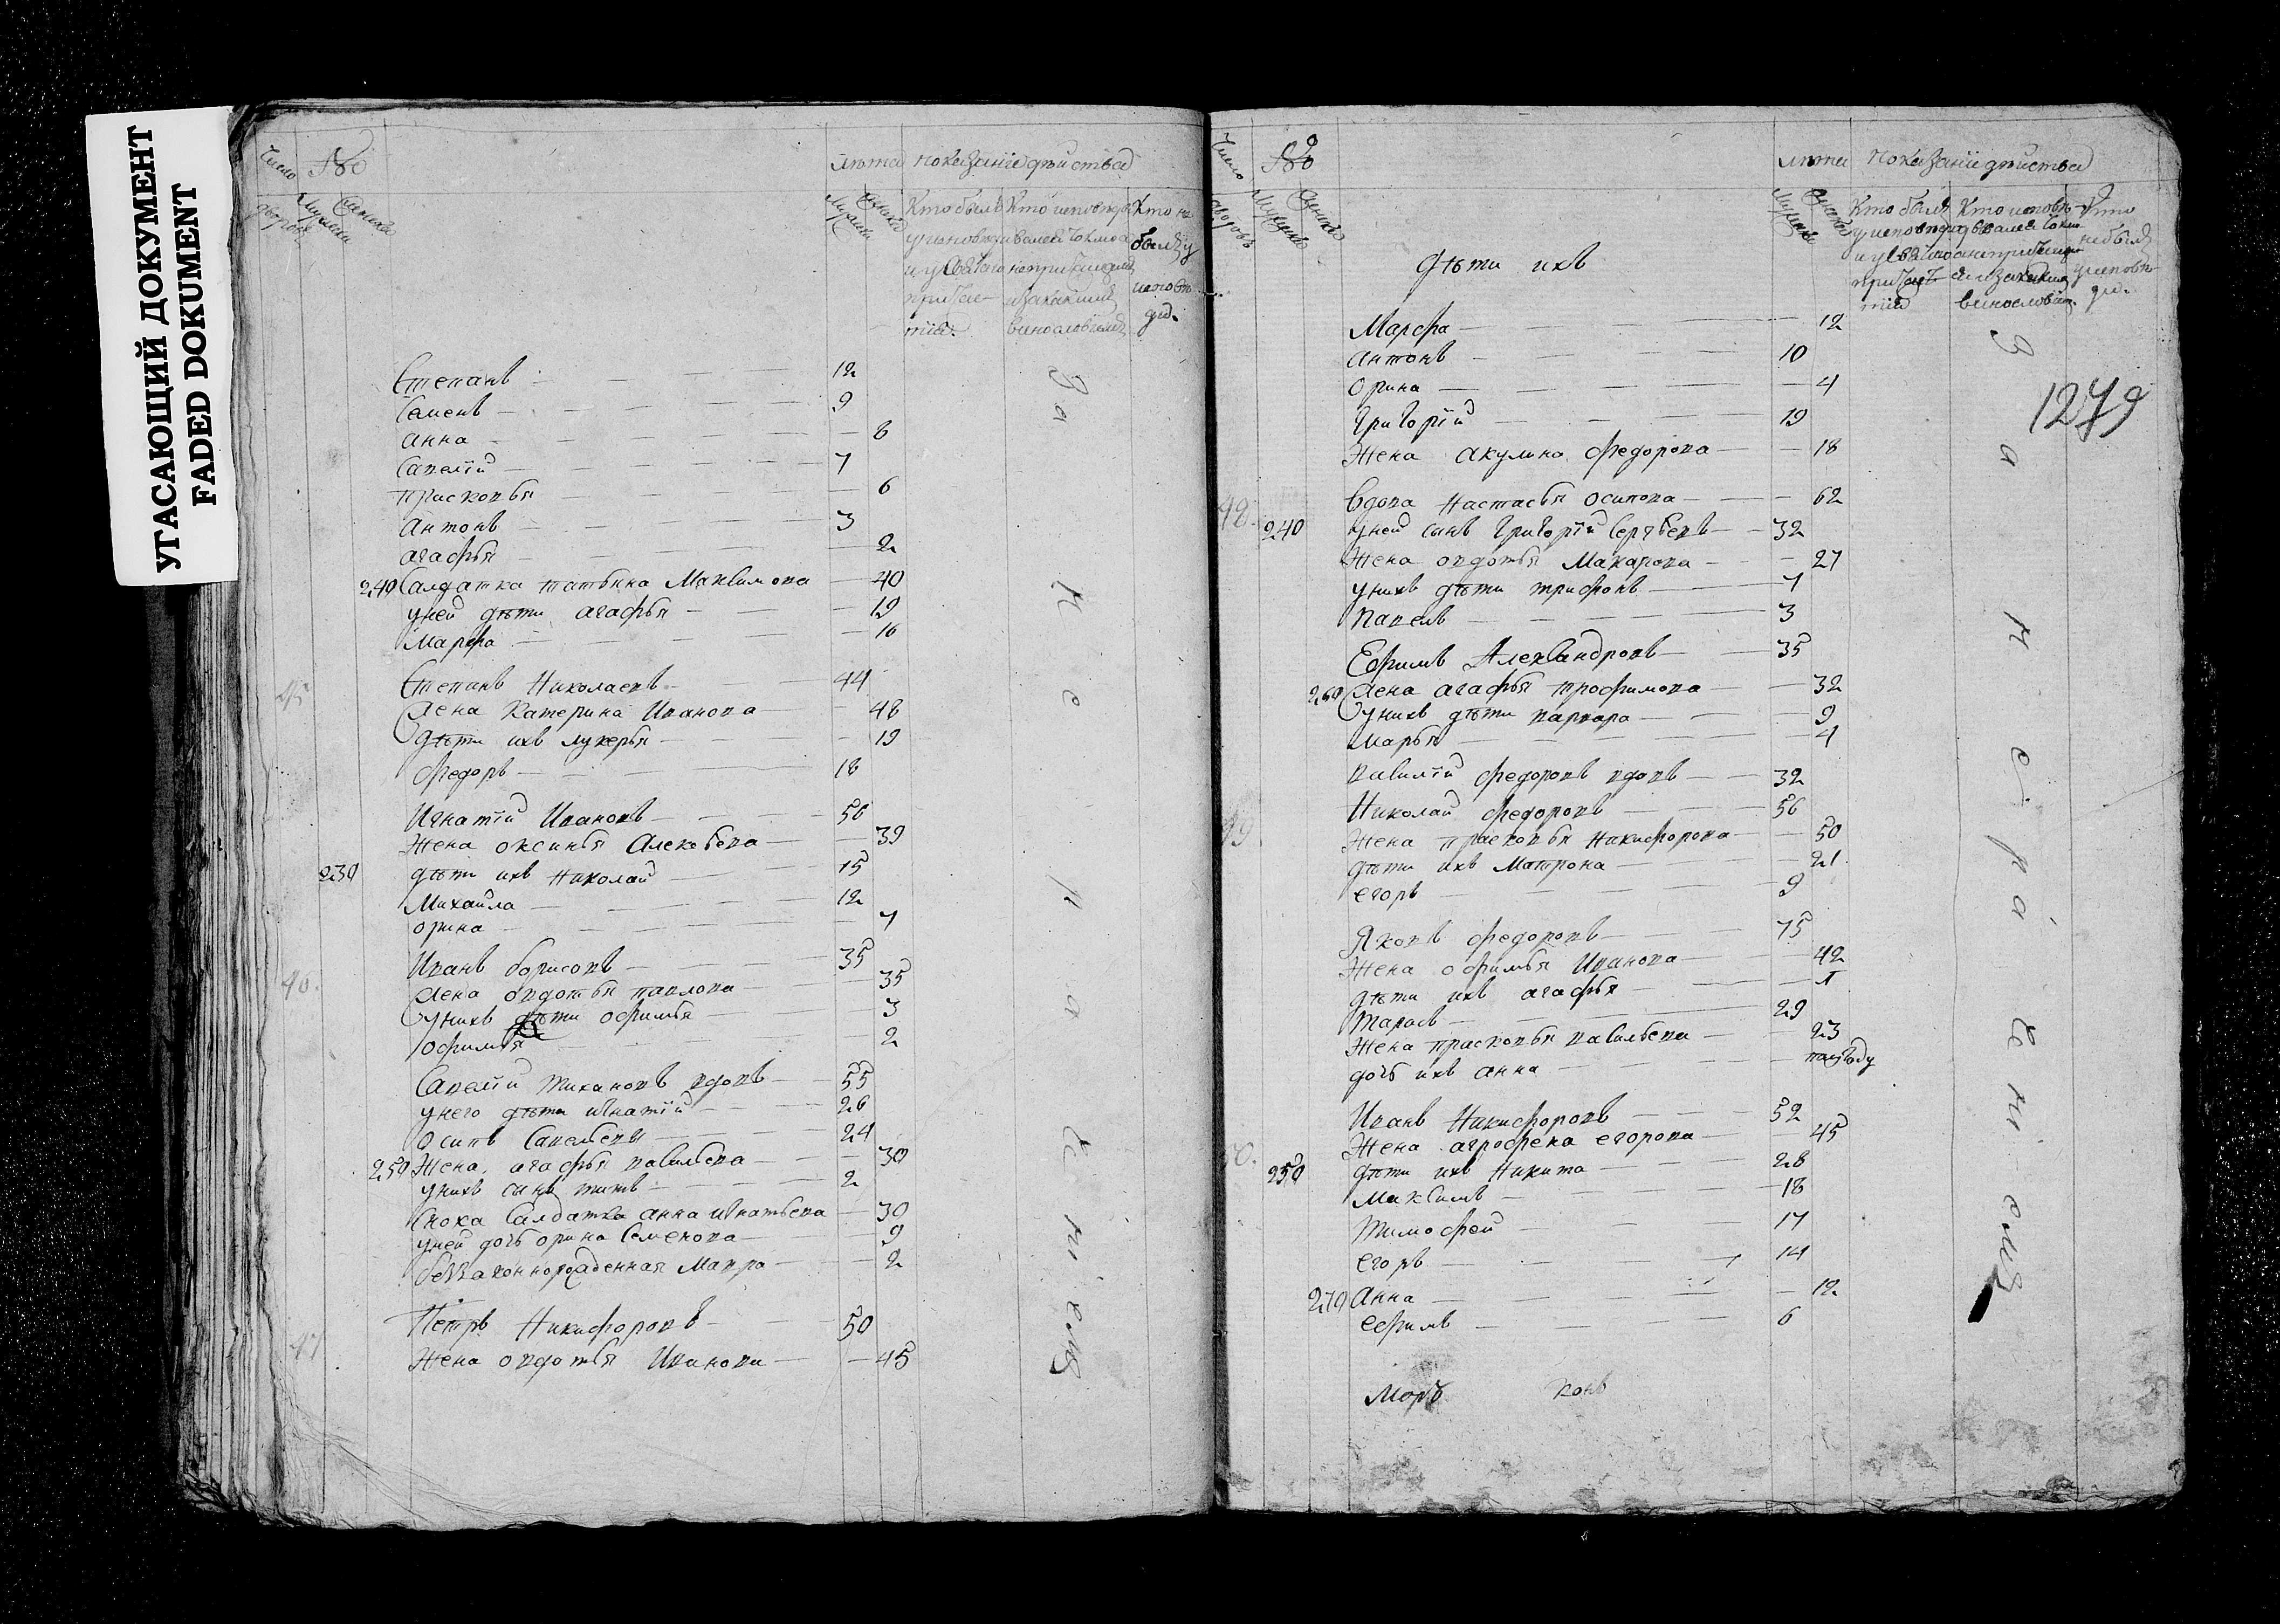 УГАСАЮЩИЙ ДОКУМЕНТ
FADED DOKUMENT
Число
дворовъ
№
Мужеска
Женска
лѣта
показание дѣиства
Кто былъ
Кто исповѣдывался токмо а
не причащался
и за какимъ
винословиемъ
Кто не
былъ у
исповѣ-
ди.
Степанъ 12
Семенъ 9
анна 8
Савелій 7
прасковья 6
антонъ 3
агафья 2
240 Салдатка татьяна Максимова 40
у ней дѣти агафья 19
Марфа 16
45
Степанъ Николаевъ 44
Жена Катерина Иванова 48
дѣти ихъ лукерья 19
Федоръ 18
Игнатій Ивановъ 56
Жена оксинья 39
230 дѣти ихъ Николай 15
Михайла 12
орина 7
46.
Иванъ борисовъ 35
Жена овдотья павлова 35
у нихъ дѣти офимья 3
офимья 2
Савелій тихановъ вдовъ 55
у него дѣти игнатій 26
осипъ Савельевъ 24
250 Жена агафья васильева 30
у нихъ сынъ титъ 2
Сноха Салдатка анна игнатьева 30
у ней дочь орина Семенова 9
беззаконнорожденная Мавра 2
47
Петръ Никифоровъ 50
Жена овдотья Иванова 45
За
не
ра
че
ні
емъ
Число
дворовъ
№
Мужеска
Женска
лѣта
показаніи дѣиства
Кто былъ
Кто
не былъ
у исповѣ-
ди.
дѣти ихъ
1279
Марфа 12
антонъ 10
орина 4
григорій 19
Жена акулина Федорова 18
48.
вдова Настасья осипова 62
240 у ней сынъ григорій Сергѣевъ 32
Жена овдотья Макарова 27
у нихъ дѣти трифонъ 7
Павелъ 3
Ефимъ Александровъ 35
260 Жена агафья трофимова 32
у нихъ дѣти варвара 9
Марья 4
василій федоровъ вдовъ 32
49.
Николай федоровъ 56
Жена прасковья Никифорова 50
дѣти ихъ Матрона 21
егоръ 9
Яковъ федоровъ 75
Жена офимья Иванова 42
дѣти ихъ агафья
тарасъ 29
Жена прасковья васильева 23
дочь ихъ анна полугоду
50.
Иванъ Никифоровъ 52
Жена агрофена егорова 45
250 дѣти ихъ Никита 28
Максимъ 18
Тимофей 17
егоръ 14
270 Анна 12
ефимъ 6
За
не
ра
че
ні
емъ